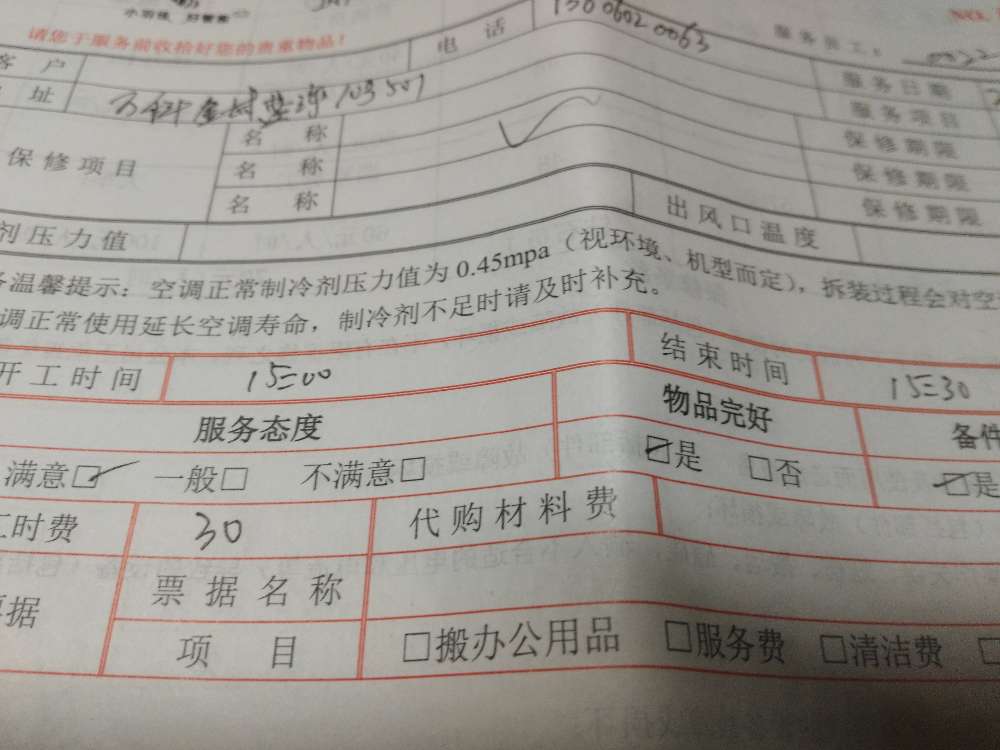 小羽佳 好管家
请您于服务前收拾好您的贵重物品！
电 话 13006020063
服务员工：
客 户
服务日期
址 万科金域 103 501
服务项目
保修项目
名 称 保修期限
名 称 保修期限
名 称 保修期限
剂压力值 出风口温度
温馨提示：空调正常制冷剂压力值为0.45mpa（视环境、机型而定），拆装过程会对空
调正常使用延长空调寿命，制冷剂不足时请及时补充。
开工时间 15=00 结束时间 15=30
服务态度 物品完好 备件
满意□ 一般□ 不满意□ □是 □否 □是
工时费 30 代购材料费
票据
票据名称
项 目 □搬办公用品 □服务费 □清洁费